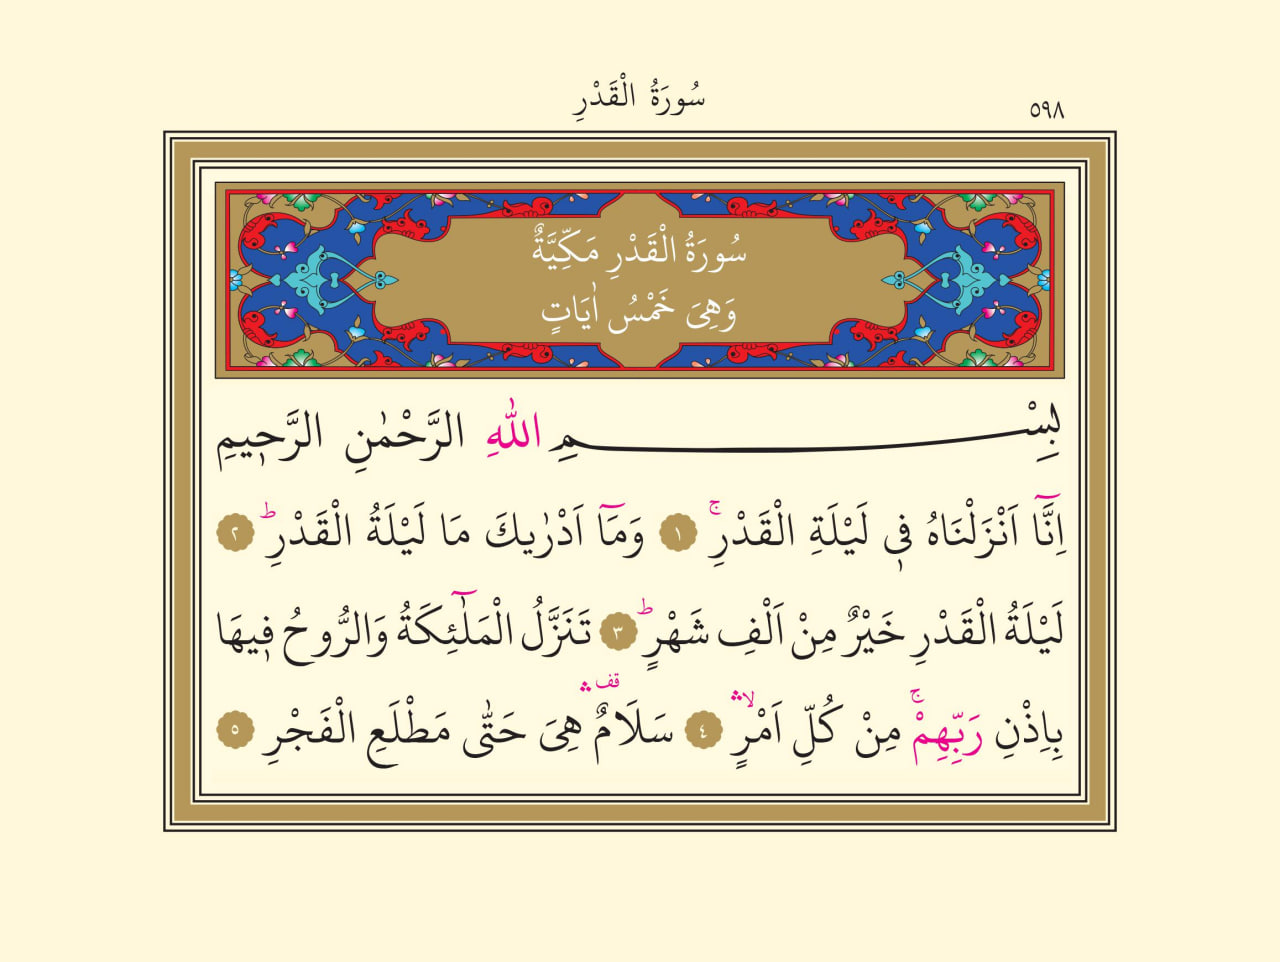 سُورَةُ الْقَدْرِ
٥٩٨
سُورَةُ الْقَدْرِ مَكِّيَّةٌ
وَهِىَ خَمْسُ اٰيَاتٍ
بِسْمِ اللّٰهِ الرَّحْمٰنِ الرَّحٖيمِ
اِنَّٓا اَنْزَلْنَاهُ فٖى لَيْلَةِ الْقَدْرِۚ ١ وَمَٓا اَدْرٰيكَ مَا لَيْلَةُ الْقَدْرِؕ ٢
لَيْلَةُ الْقَدْرِ خَيْرٌ مِنْ اَلْفِ شَهْرٍؕ ٣ تَنَزَّلُ الْمَلٰٓئِكَةُ وَالرُّوحُ فٖيهَا
بِاِذْنِ رَبِّهِمْۚ مِنْ كُلِّ اَمْرٍۙۛ ٤ سَلَامٌ۠ۛ هِىَ حَتّٰى مَطْلَعِ الْفَجْرِ ٥